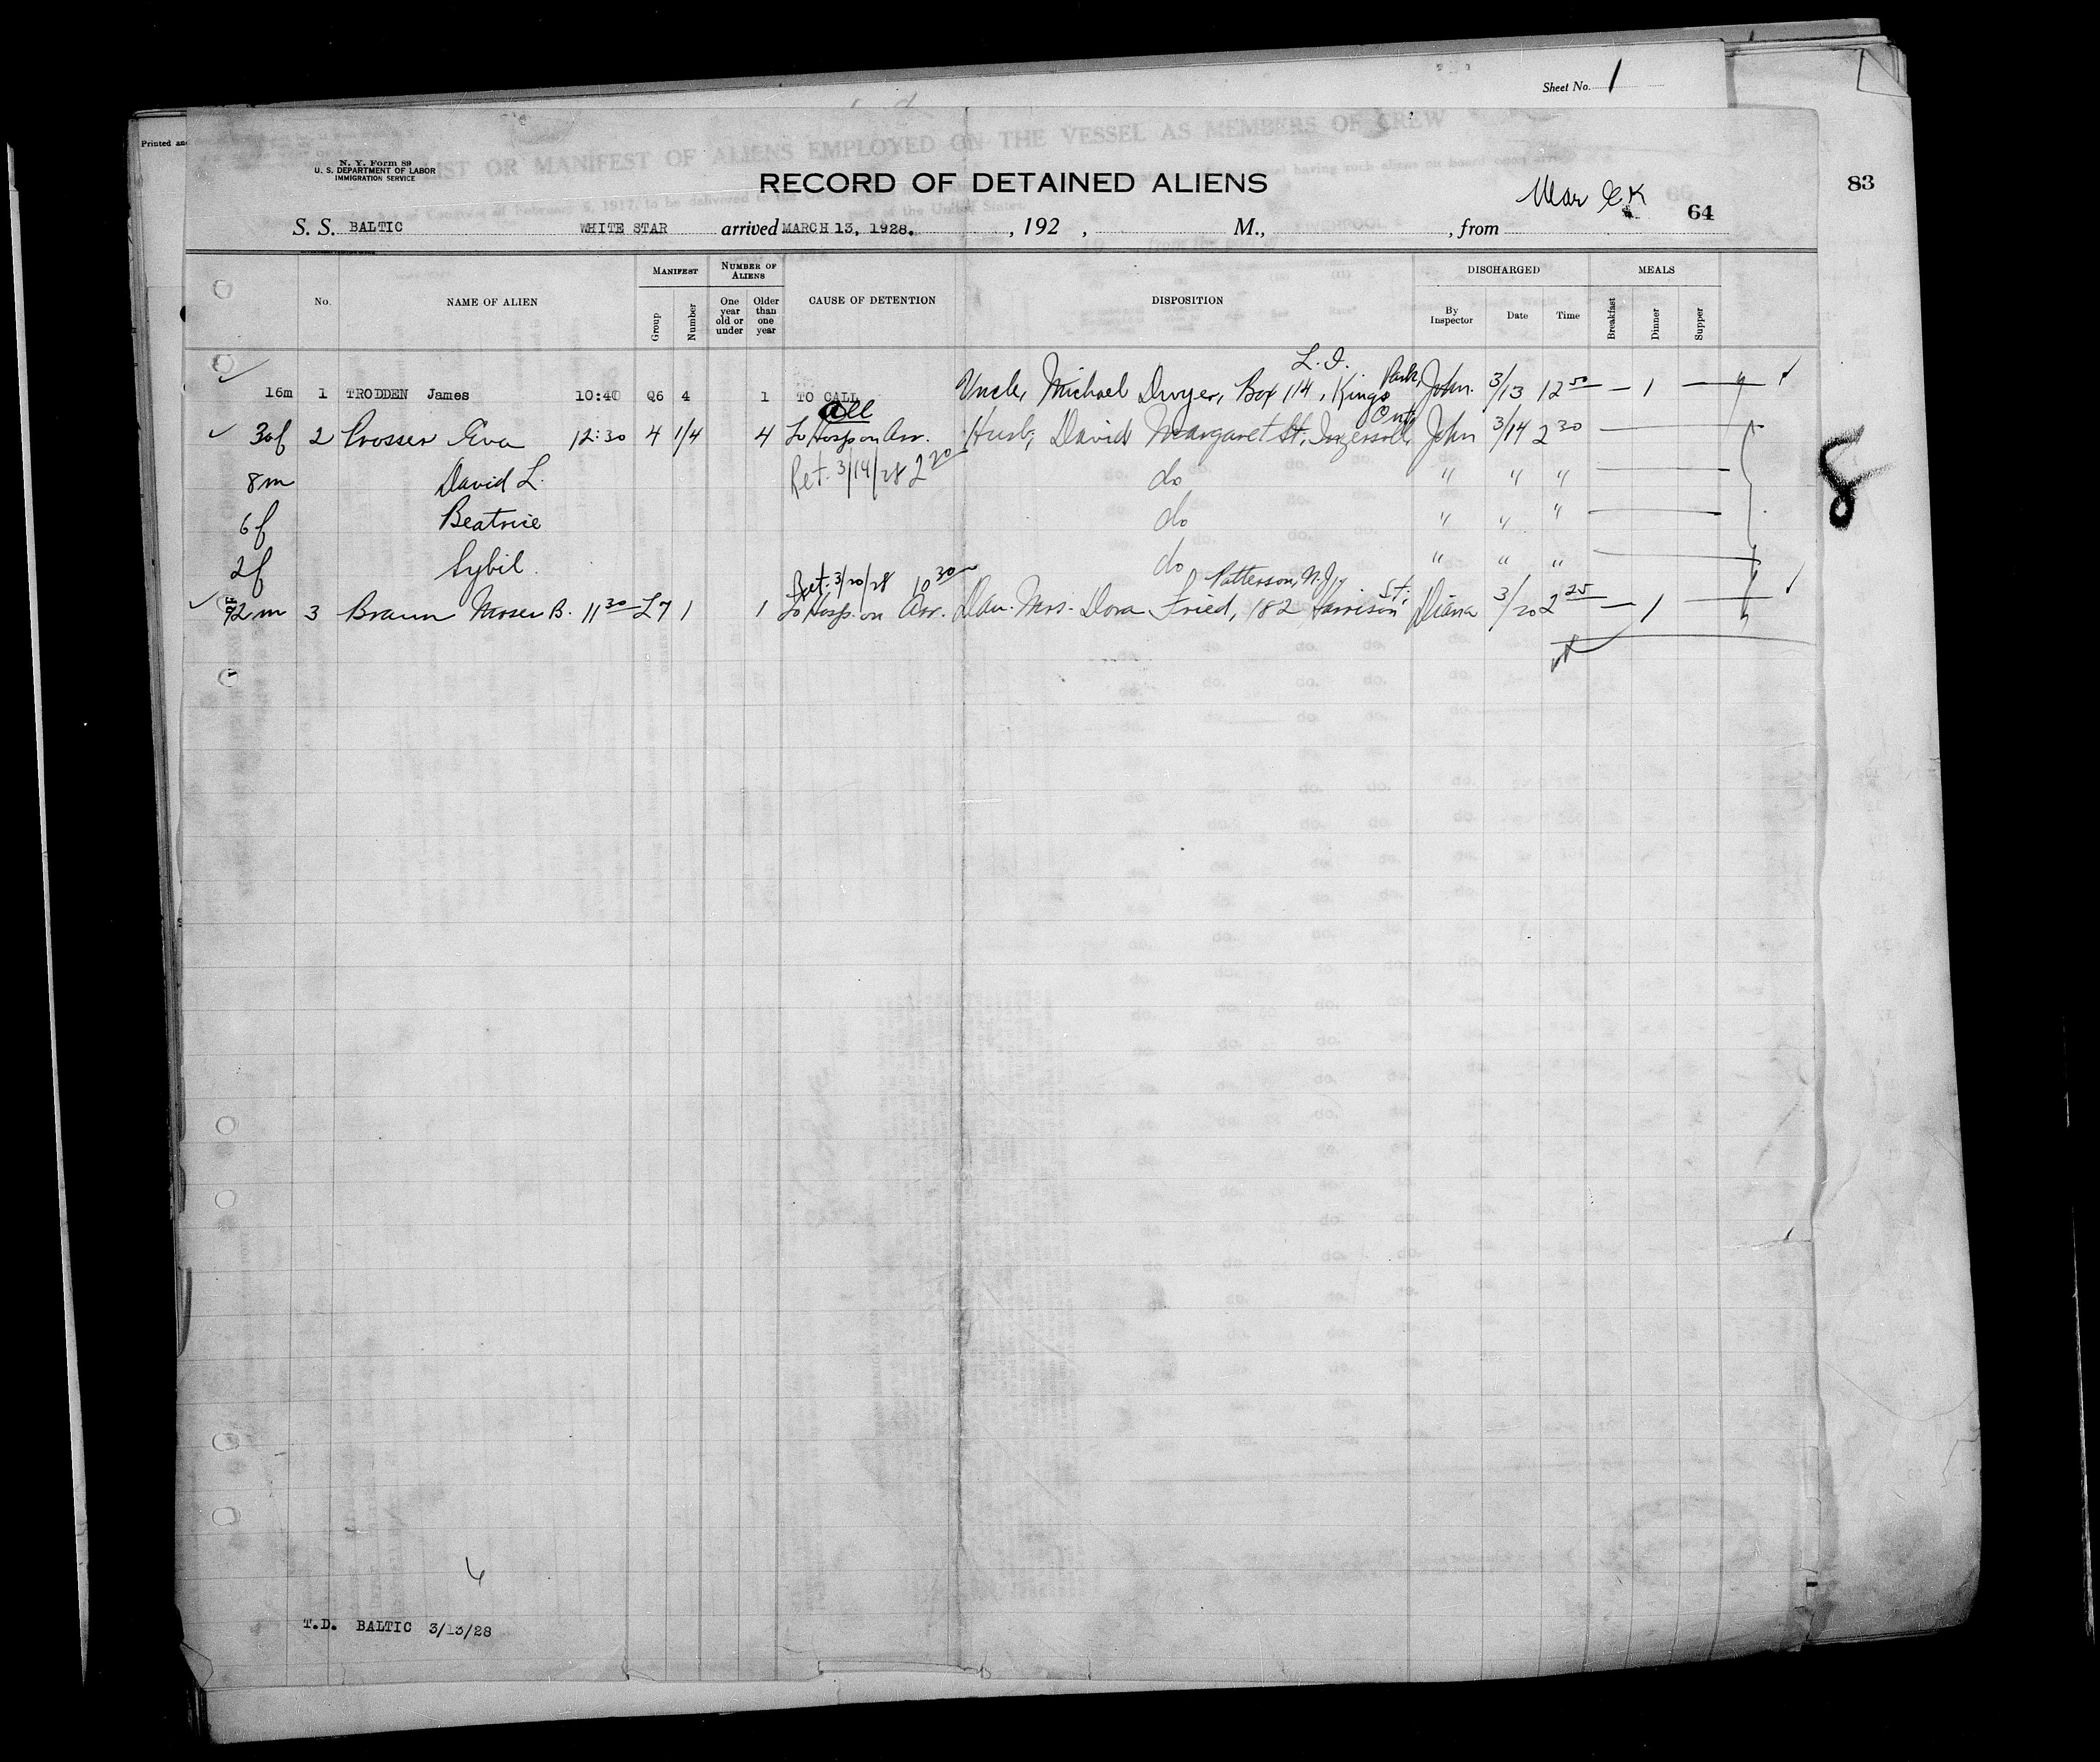 Sheet No. 1
Printed and
LIST OR MANIFEST OF ALIENS EMPLOYED ON THE VESSEL AS MEMBERS OF CREW
N. Y. Form 89
U. S. DEPARTMENT OF LABOR
IMMIGRATION SERVICE
RECORD OF DETAINED ALIENS
83
64
S. S. BALTIC WHITE STAR arrived MARCH 13, 1928. , 192 , M., , from
MANIFEST NUMBER OF ALIENS DISCHARGED MEALS
No. NAME OF ALIEN Group Number One year old or under Older than one year CAUSE OF DETENTION DISPOSITION By Inspector Date Time Breakfast Dinner Supper
L. I.
16m 1 TRODDEN James 10:40 Q6 4 1 TO CALL Uncle, Michael Dwyer, Box 114, Kings Park, John. 3/13 12 50 — 1 —
all Ont.
30f 2 Prosser Eva 12:30 4 1/4 4 To Hosp on Arr. Husb, David Margaret St. Ingersoll, John 3/14 2 30
8m David L. Ret. 3/14/28 2 20 do " " "
6f Beatrice do " " "
2f Sybil do " " "
Ret. 3/20/28 10 30 Patterson, N.J.
92m 3 Braun Moser B. 11 30 L7 1 1 To Hosp. on Arr. Dau. Mrs. Dora Fried, 182 Harrison St. Diana 3/20 2 25 — 1 —
8
T.D. BALTIC 3/13/28